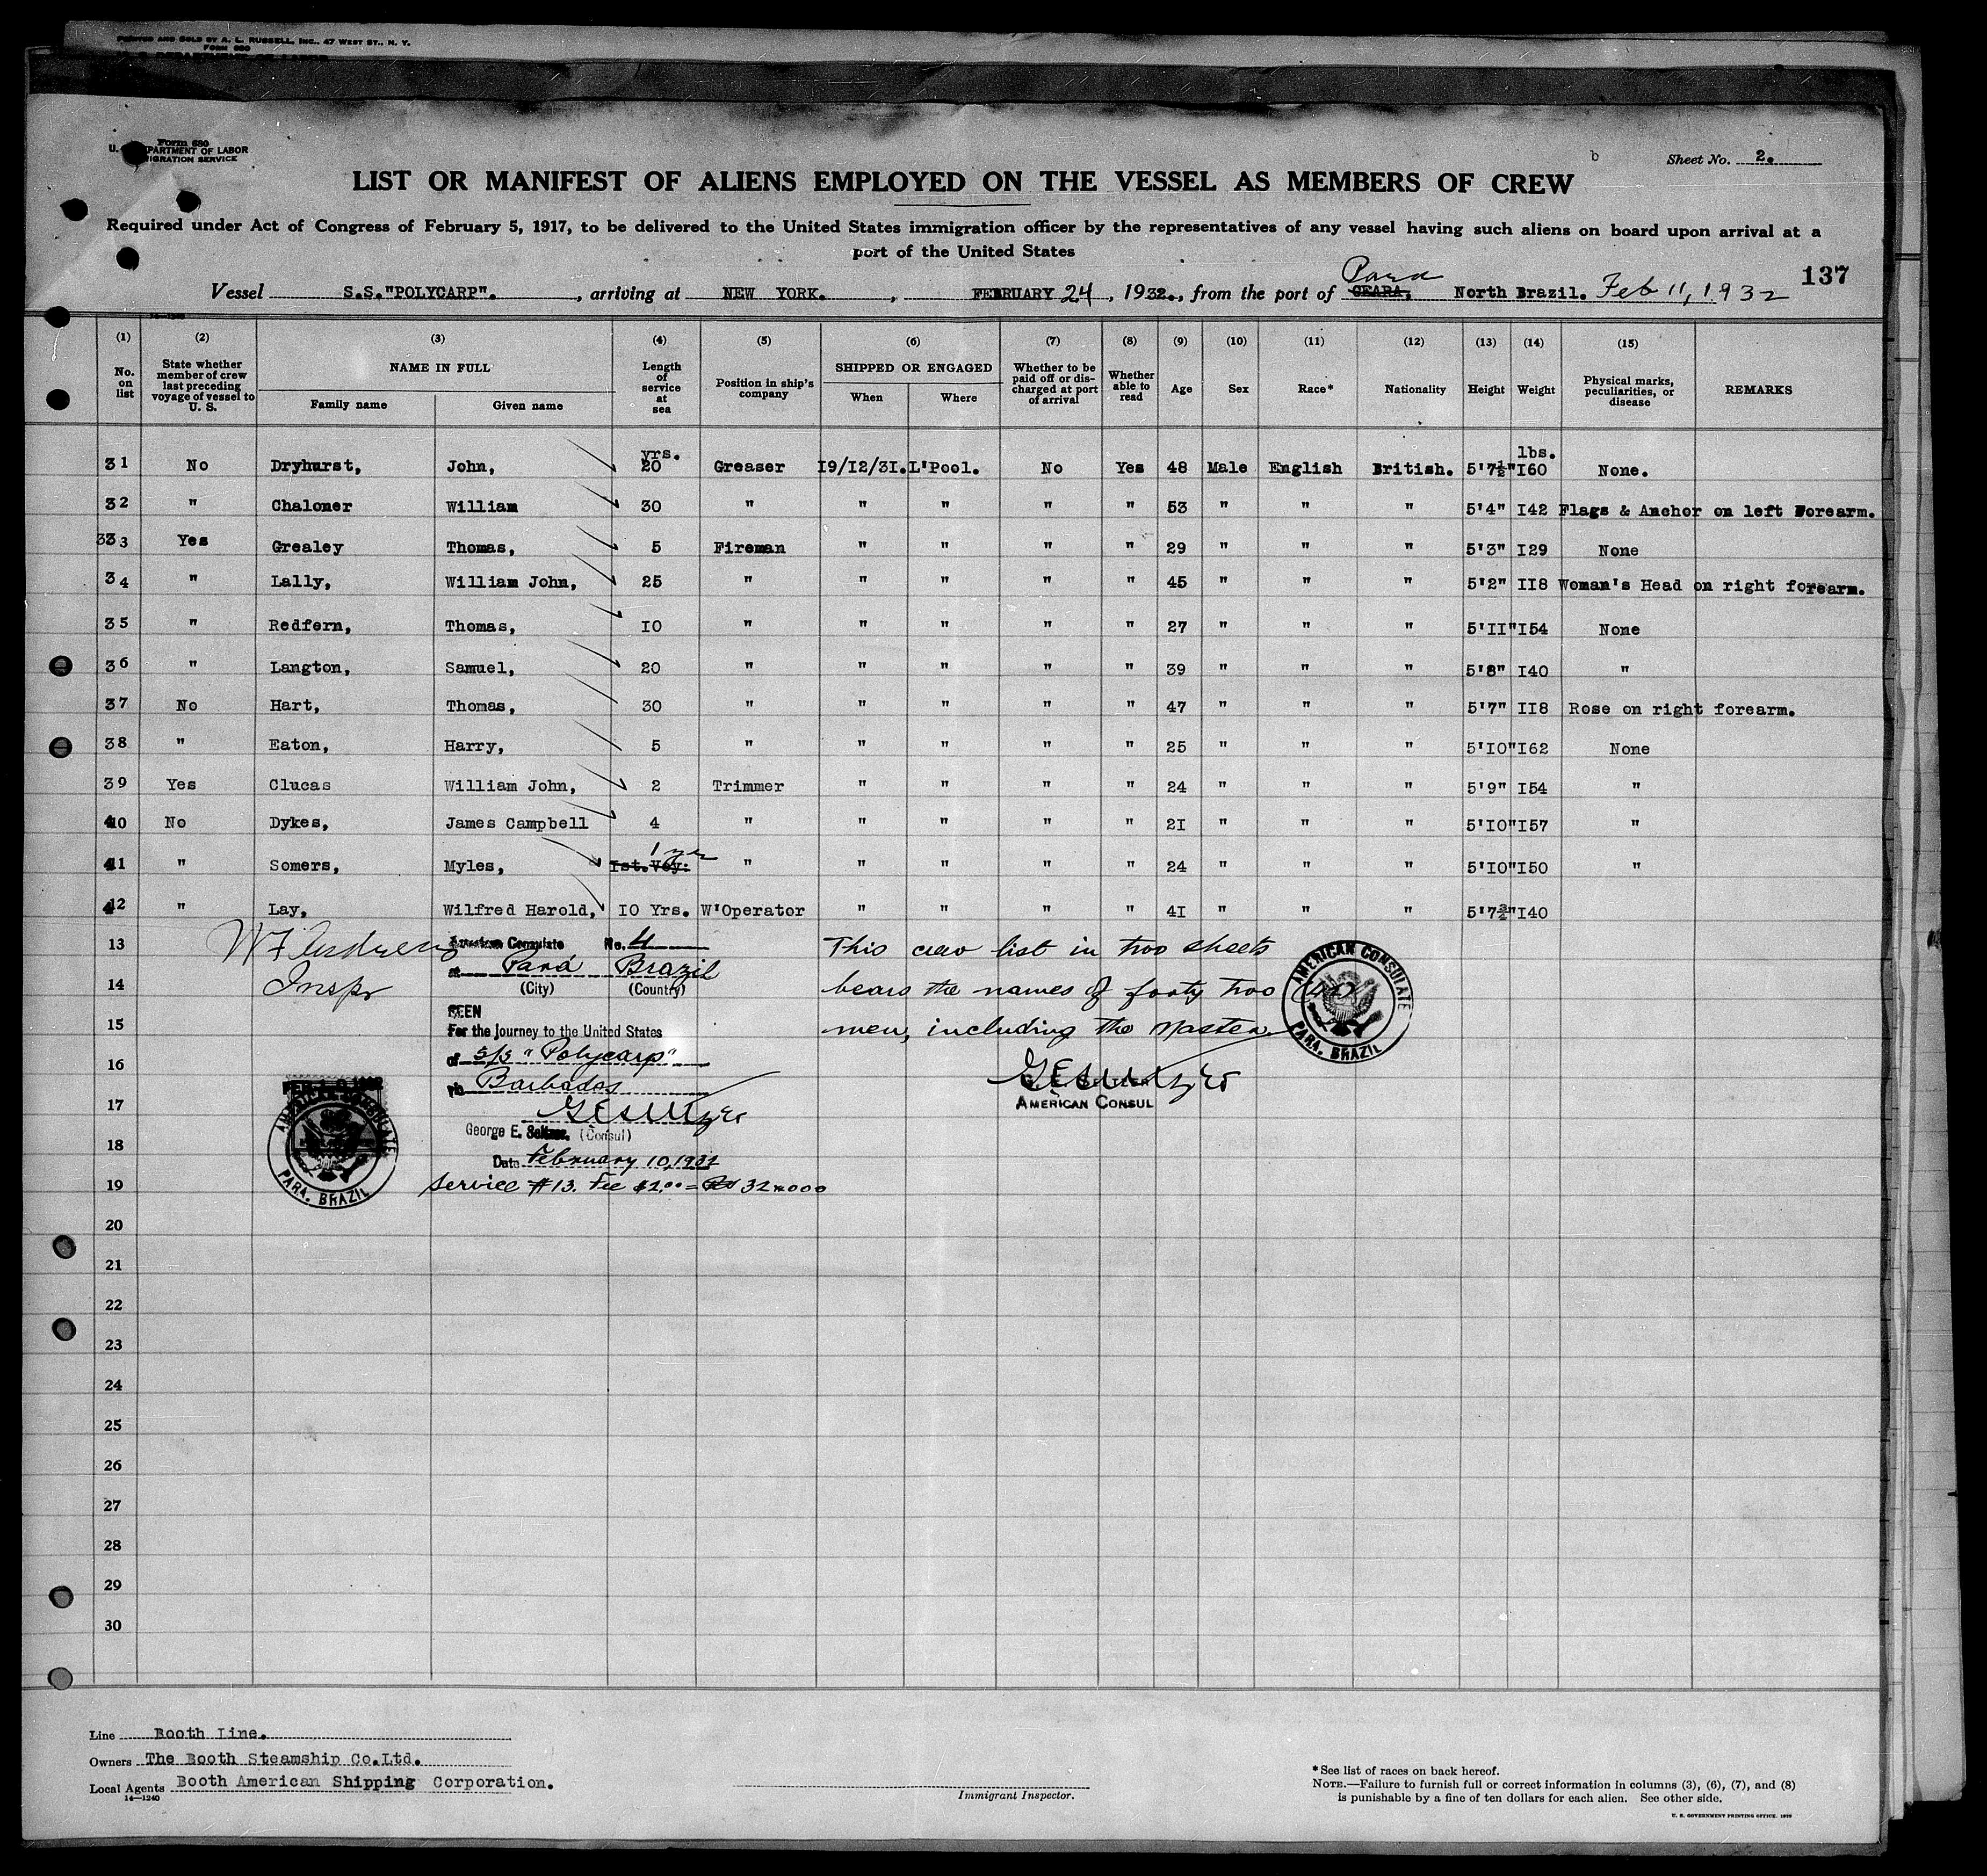 PRINTED AND SOLD BY A. L. RUSSELL, INC., 47 WEST ST., N. Y.
FORM 680
Form 680
U. DEPARTMENT OF LABOR
IGRATION SERVICE
b
Sheet No. 2.
LIST OR MANIFEST OF ALIENS EMPLOYED ON THE VESSEL AS MEMBERS OF CREW
Required under Act of Congress of February 5, 1917, to be delivered to the United States immigration officer by the representatives of any vessel having such aliens on board upon arrival at a
port of the United States
137
Vessel S.S."POLYCARP". , arriving at NEW YORK. , FEBRUARY 24, 1932., from the port of CEARA, Para North Brazil. Feb 11, 1932
(1) (2) (3) (4) (5) (6) (7) (8) (9) (10) (11) (12) (13) (14) (15)
No. on list
State whether member of crew last preceding voyage of vessel to U. S.
NAME IN FULL
Family name Given name
Length of service at sea
Position in ship's company
SHIPPED OR ENGAGED
When Where
Whether to be paid off or discharged at port of arrival
Whether able to read
Age Sex Race* Nationality Height Weight
Physical marks, peculiarities, or disease
REMARKS
yrs. lbs.
31 No Dryhurst, John, 20 Greaser 19/12/31. L'Pool. No Yes 48 Male English British. 5'7½" 160 None.
32 " Chaloner William 30 " " " " " 53 " " " 5'4" 142 Flags & Anchor on left Forearm.
33 Yes Grealey Thomas, 5 Fireman " " " " 29 " " " 5'3" 129 None
34 " Lally, William John, 25 " " " " " 45 " " " 5'2" 118 Woman's Head on right forearm.
35 " Redfern, Thomas, 10 " " " " " 27 " " " 5'11" 154 None
36 " Langton, Samuel, 20 " " " " " 39 " " " 5'8" 140 "
37 No Hart, Thomas, 30 " " " " " 47 " " " 5'7" 118 Rose on right forearm.
38 " Eaton, Harry, 5 " " " " " 25 " " " 5'10" 162 None
39 Yes Clucas William John, 2 Trimmer " " " " 24 " " " 5'9" 154 "
40 No Dykes, James Campbell 4 " " " " " 21 " " " 5'10" 157 "
41 " Somers, Myles, Ist.Voy: 1 yr " " " " " 24 " " " 5'10" 150 "
42 " Lay, Wilfred Harold, 10 Yrs. W'Operator " " " " 41 " " " 140
13
14
15
16
17
18
19
20
21
22
23
24
25
26
27
28
29
30
Inspr
American Consulate No. 4
at Pará Brazil
(City) (Country)
SEEN
For the journey to the United States
of S/S "Polycarp"
via Barbados
George E. Seltzer. (Consul)
Date February 10, 1932
Service #13. Fee $2.00 = 32$000
This crew list in two sheets
bears the names of forty two (42)
men, including the Master
G. E. SELTZER
AMERICAN CONSUL
AMERICAN CONSULATE
PARA, BRAZIL
AMERICAN CONSULATE
PARA, BRAZIL
Line Booth Line.
Owners The Booth Steamship Co.Ltd.
Local Agents Booth American Shipping Corporation.
14—1240
Immigrant Inspector.
*See list of races on back hereof.
NOTE.—Failure to furnish full or correct information in columns (3), (6), (7), and (8)
is punishable by a fine of ten dollars for each alien. See other side.
U. S. GOVERNMENT PRINTING OFFICE. 1929